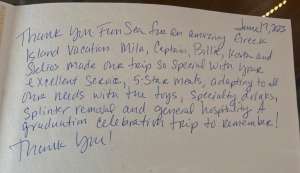 June 17, 2023
Thank you Fun Sea for an amazing Greek
Island Vacation. Mila, Captain, Bille, Kevin and
made our trip so special with your
excellent service, 5-Star meals, adapting to all
our needs with the toys, specialty drinks,
splinter removal and general hospitality. A
graduation celebration trip to remember!
Thank You!